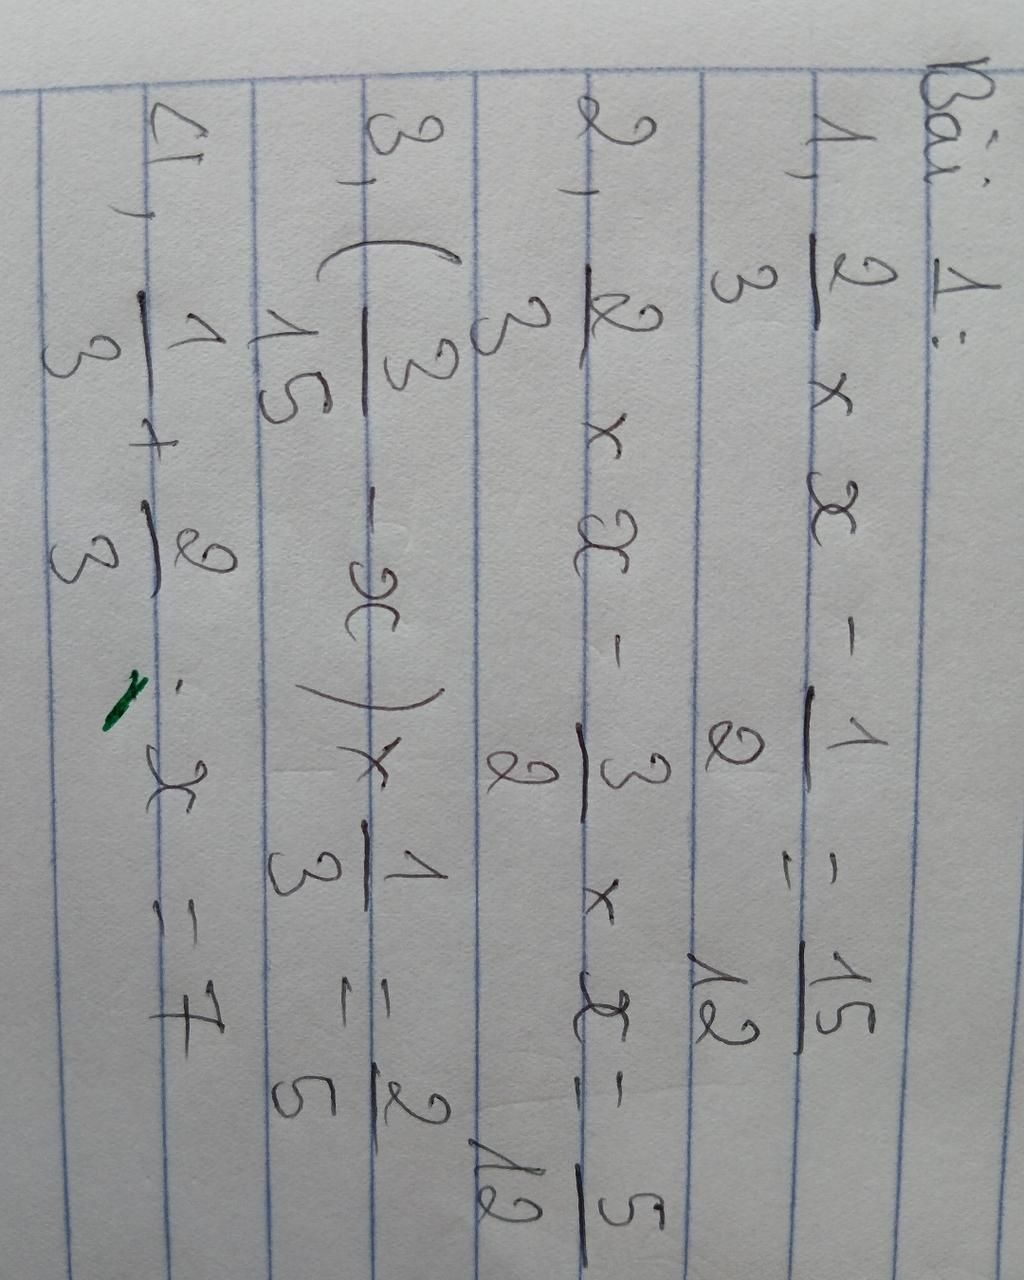 Bài 1:
1, 2/3 x x - 1/2 = 15/12
2, 2/3 x x - 3/2 x x = 5/12
3, (3/15 - x) x 1/3 = 2/5
4, 1/3 + 2/3 : x = 7